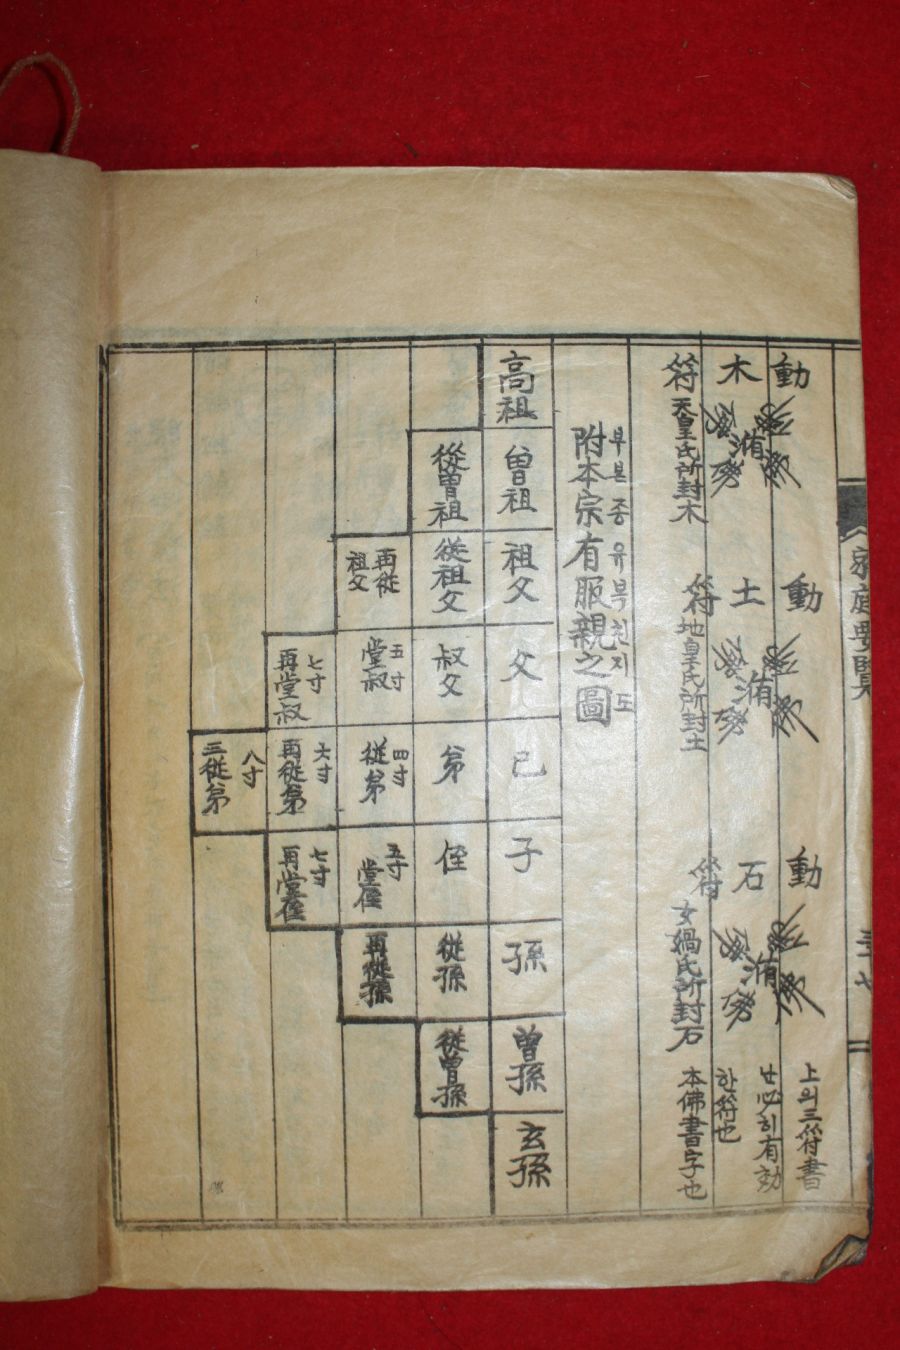 家庭要覽
三十七
動木符
天皇氏所封木
動土符
地皇氏所封土
動石符
女媧氏所封石
上의三符書
난必히有効
한符也
本佛書字也
附本宗有服親之圖
부본종유복친지도
高祖
曾祖
祖父
父
己
子
孫
曾孫
玄孫
從曾祖
從祖父
叔父
弟
侄
從孫
從曾孫
再從祖父
五寸堂叔
四寸從弟
五寸堂侄
再從孫
七寸再堂叔
六寸再從弟
七寸再堂侄
八寸三從弟